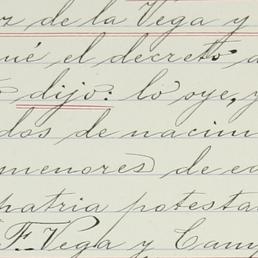 z de la Vega y
ué el decreto
dijo: lo oye, y
dos de nacim
menores de e
patria potesta
F. Vega y Cam